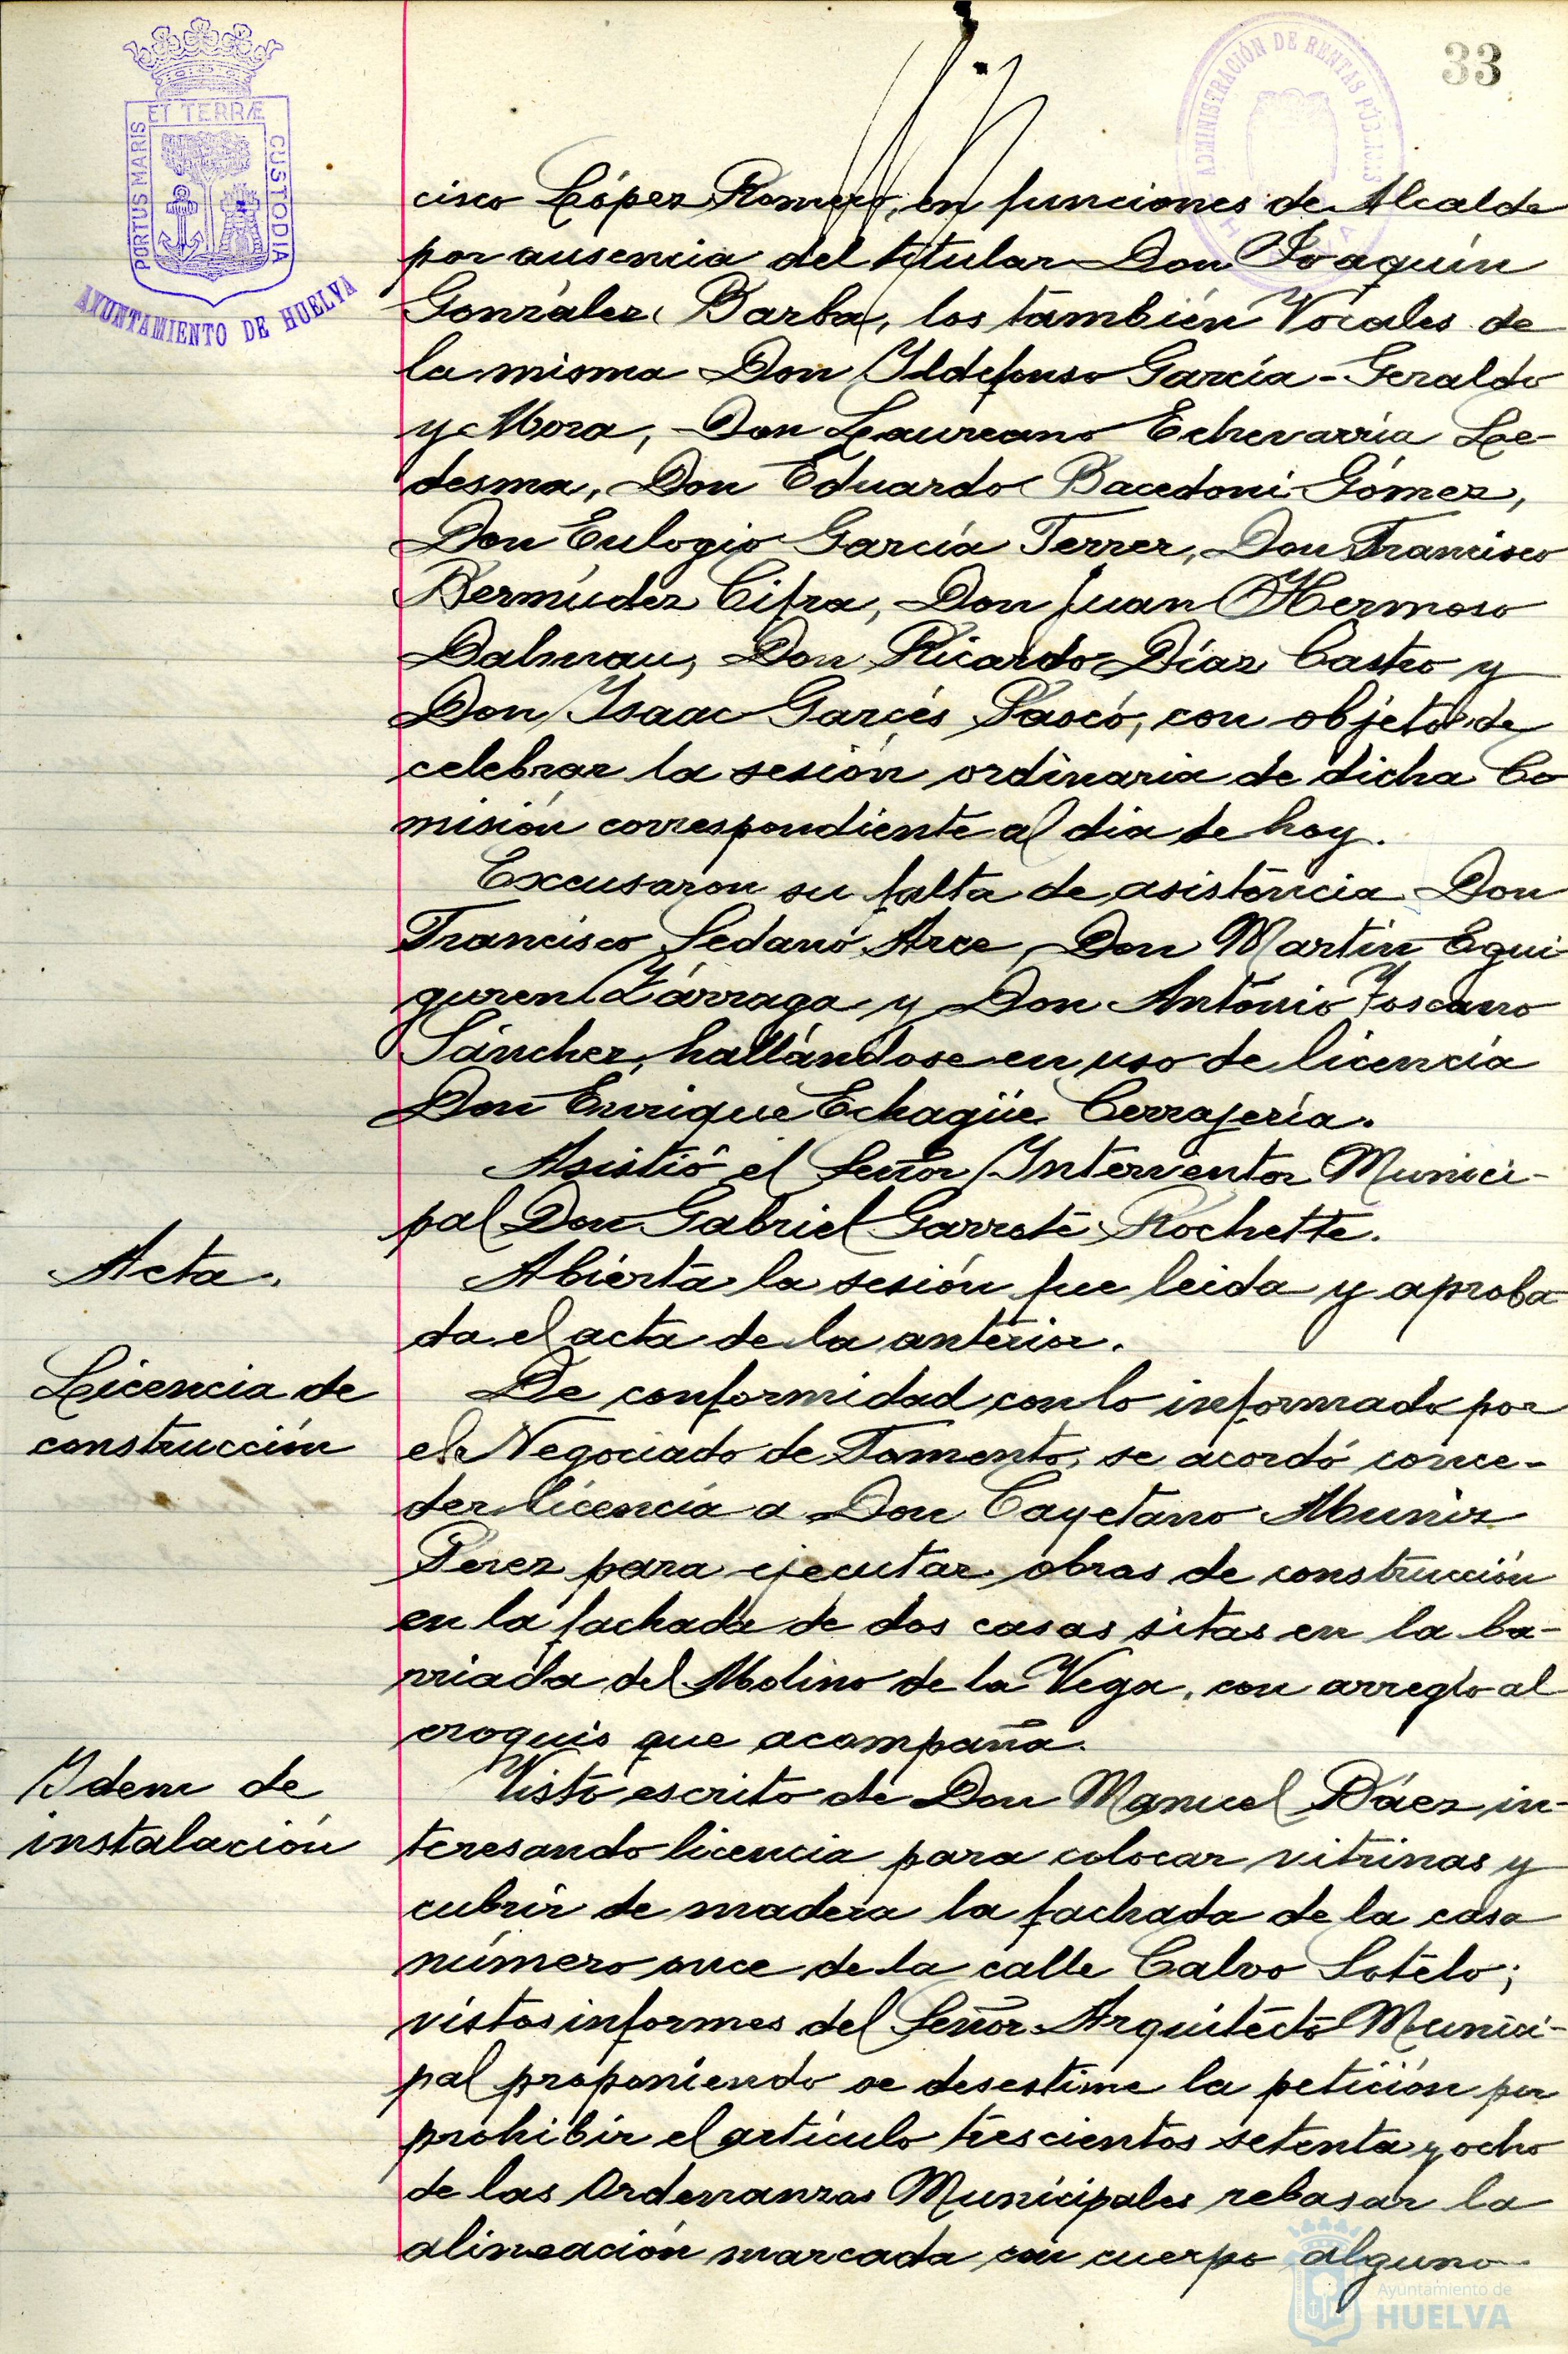 33
ET TERRÆ
PORTUS MARIS
CUSTODIA
AYUNTAMIENTO DE HUELVA
ADMINISTRACIÓN DE RENTAS PÚBLICAS
cisco López Romero, en funciones de Alcalde
por ausencia del titular Don Joaquín
González Barba, los también Vocales de
la misma Don Ildefonso García-Geraldo
y Mora, Don Laureano Echevarría Le-
desma, Don Eduardo Bacedoni Gómez,
Don Eulogio García Ferrer, Don Francisco
Bermúdez Cifra, Don Juan Hermoso
Dalmau, Don Ricardo Díaz Castro y
Don Isaac Garcés Pascó, con objeto de
celebrar la sesión ordinaria de dicha Co
misión correspondiente al dia de hoy.
Excusaron su falta de asistencia Don
Francisco Sedano Arce, Don Martín Egui
guren Zárraga y Don Antonio Toscano
Sánchez, hallándose en uso de licencia
Don Enrique Echagüe Cerrajería.
Asistió el Señor Interventor Munici-
pal Don Gabriel Garrote Rochette.
Acta.
Abierta la sesión fue leida y aproba
da el acta de la anterior.
Licencia de
construcción
De conformidad con lo informado por
el Negociado de Fomento, se acordó conce-
der licencia a Don Cayetano Muniz
Perez para ejecutar obras de construcción
en la fachada de dos casas sitas en la ba-
rriada del Molino de la Vega, con arreglo al
croquis que acompaña.
Idem de
instalación
Visto escrito de Don Manuel Báez in-
teresando licencia para colocar vitrinas y
cubrir de madera la fachada de la casa
número once de la calle Calvo Sotelo;
vistos informes del Señor Arquitecto Munici-
pal proponiendo se desestime la petición por
prohibir el artículo trescientos setenta y ocho
de las Ordenanzas Municipales rebasar la
alineación marcada con cuerpo alguno
Ayuntamiento de
HUELVA